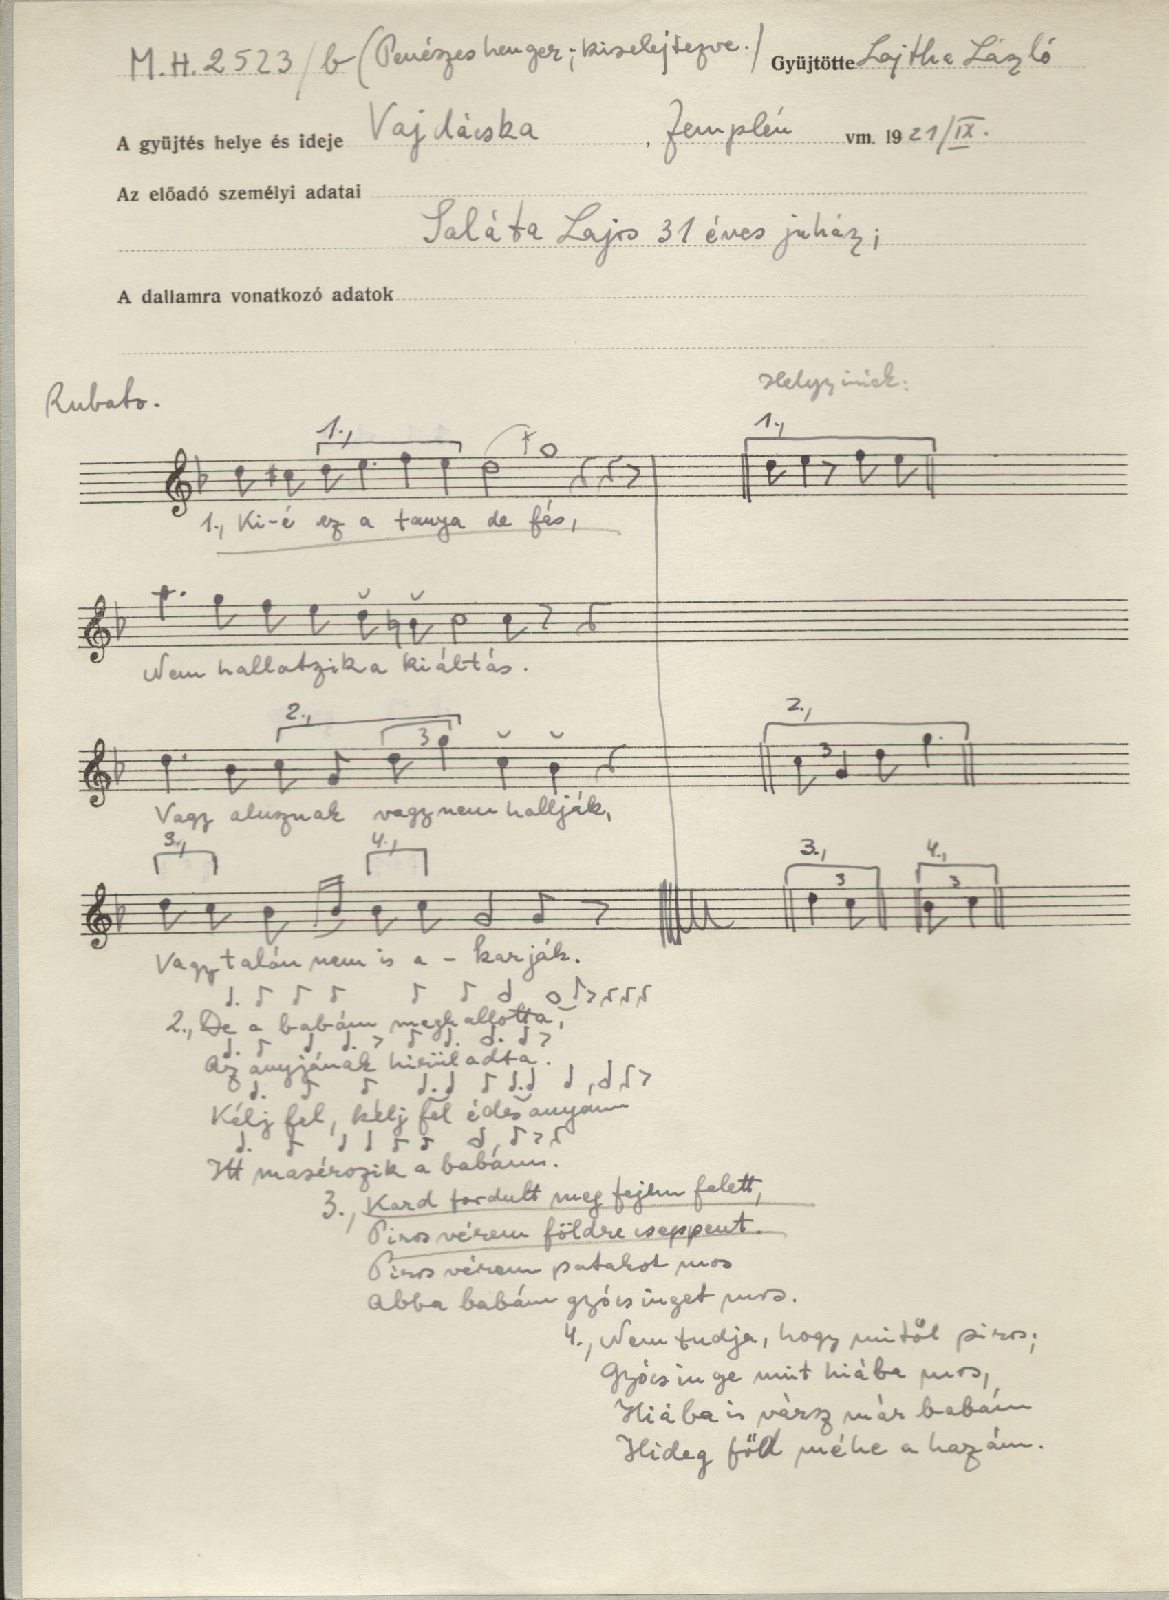 M.H. 2523/b (Penészes henger; kiselejtezve.) Gyüjtötte Lajtha László
A gyüjtés helye és ideje Vajdácska, Zemplén vm. 1921/IX.
Az előadó személyi adatai
Saláta Lajos 31 éves juház;
A dallamra vonatkozó adatok
Rubato.
1.,
1.,
1., Ki-é ez a tanya de fás,
Nem hallatzik a kiáltás.
2.,
3
2.,
3
Vagy alusznak vagy nem hallják,
3.,
4.,
3.,
3
4.,
3
Vagy talán nem is a - karják.
2., De a babám meghallotta,
Az anyjának hirül adta.
Kélj fel, kélj fel édes anyám
Itt masérozik a babám.
3., Kard fordult meg fejem felett,
Piros vérem földre cseppent.
Piros vérem patakot mos
Abba babám gyócs inget mos.
4., Nem tudja, hogy mitől piros;
Gyócs inge mit hiába mos,
Hiába is vársz már babám
Hideg föld méhe a hazám.